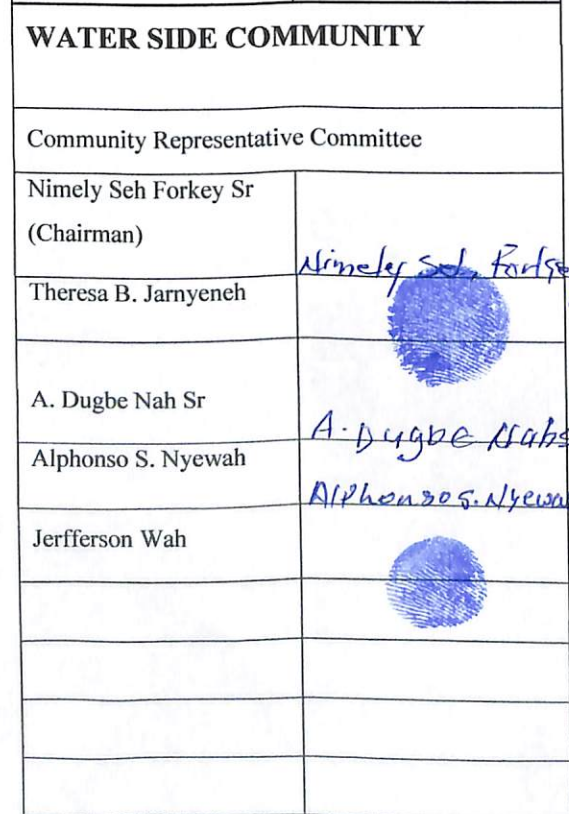 WATER SIDE COMMUNITY
Community Representative Committee
Nimely Seh Forkey Sr
(Chairman)
Nimely Seh,
Theresa B. Jarnyeneh
A. Dugbe Nah Sr
A. Dugbe Nahs
Alphonso S. Nyewah
Alphonso S. Nyewa
Jerfferson Wah